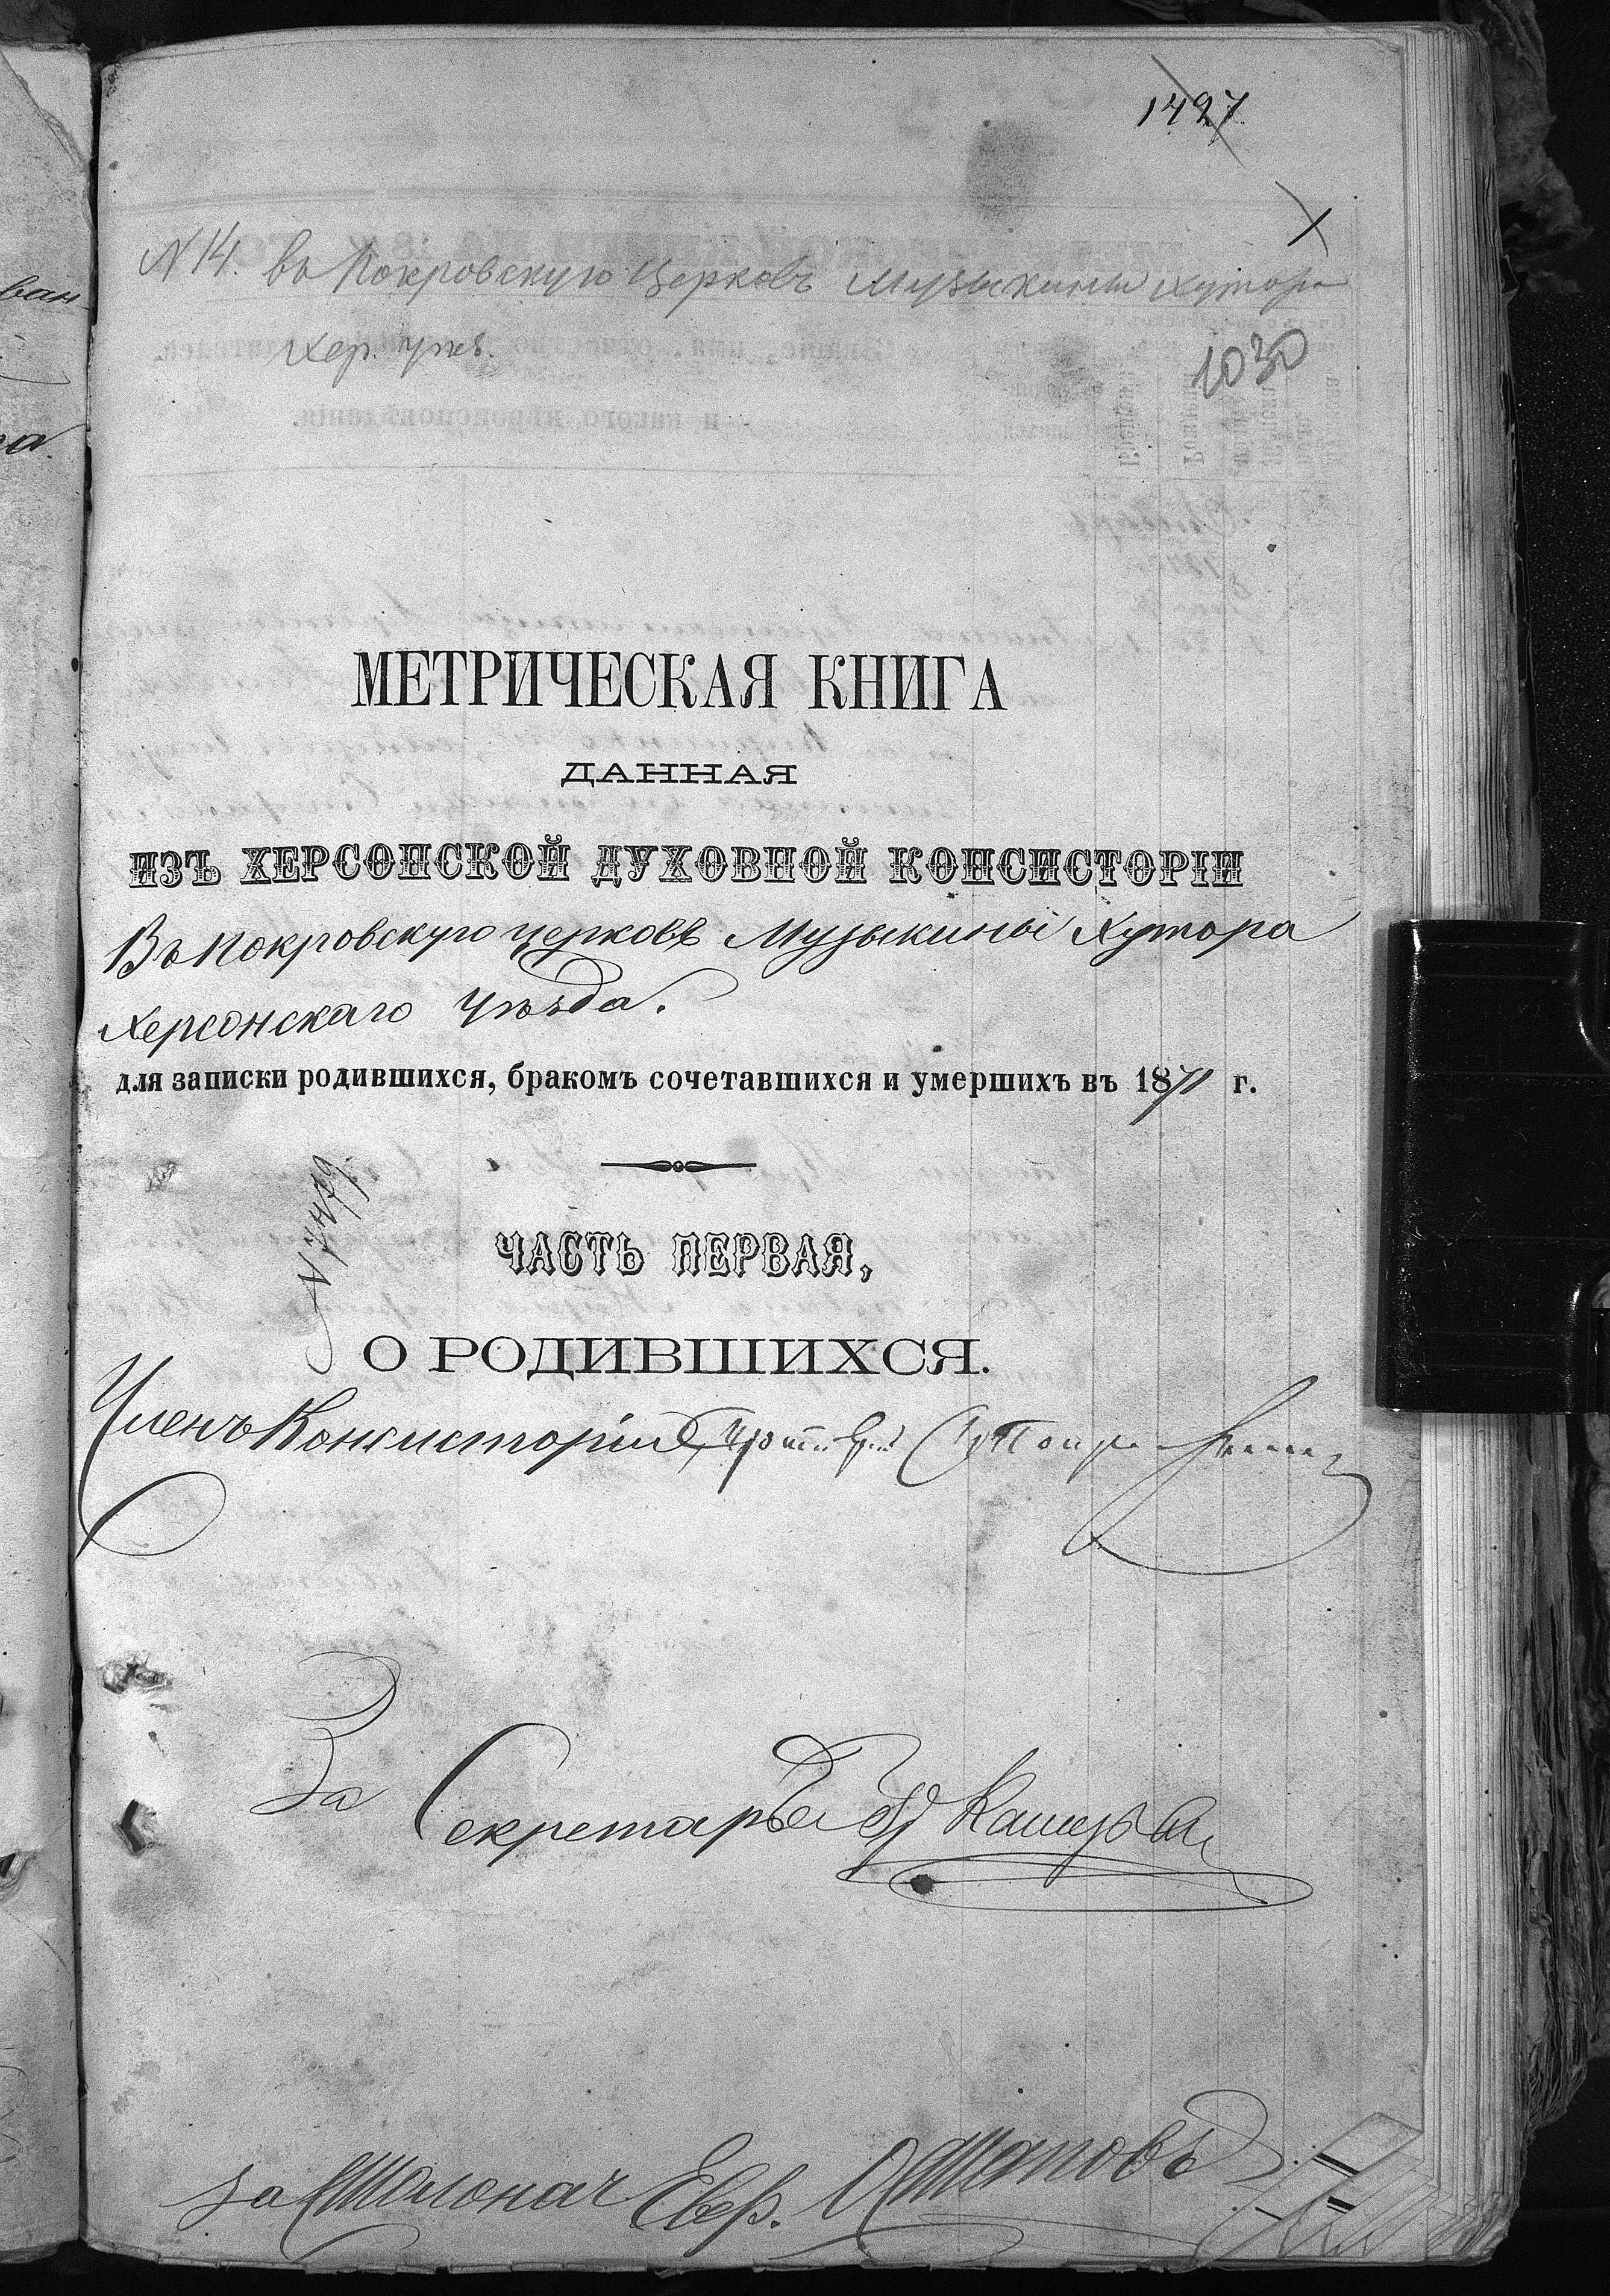 1427
N 14. въ Покровскую Церковь Музыкины хутора
1030
Хер. уѣз.
МЕТРИЧЕСКАЯ КНИГА
ДАННАЯ
ИЗЪ ХЕРСОНСКОЙ ДУХОВНОЙ КОНСИСТОРІИ
Въ Покровскую церковь Музыкины Хутора
Херсонскаго Уѣзда.
для записки родившихся, бракомъ сочетавшихся и умершихъ въ 1871 г.
N 7479
ЧАСТЬ ПЕРВАЯ,
О РОДИВШИХСЯ.
Членъ Консисторіи
За Секретаря
За Столонач. Евр. Остаповъ